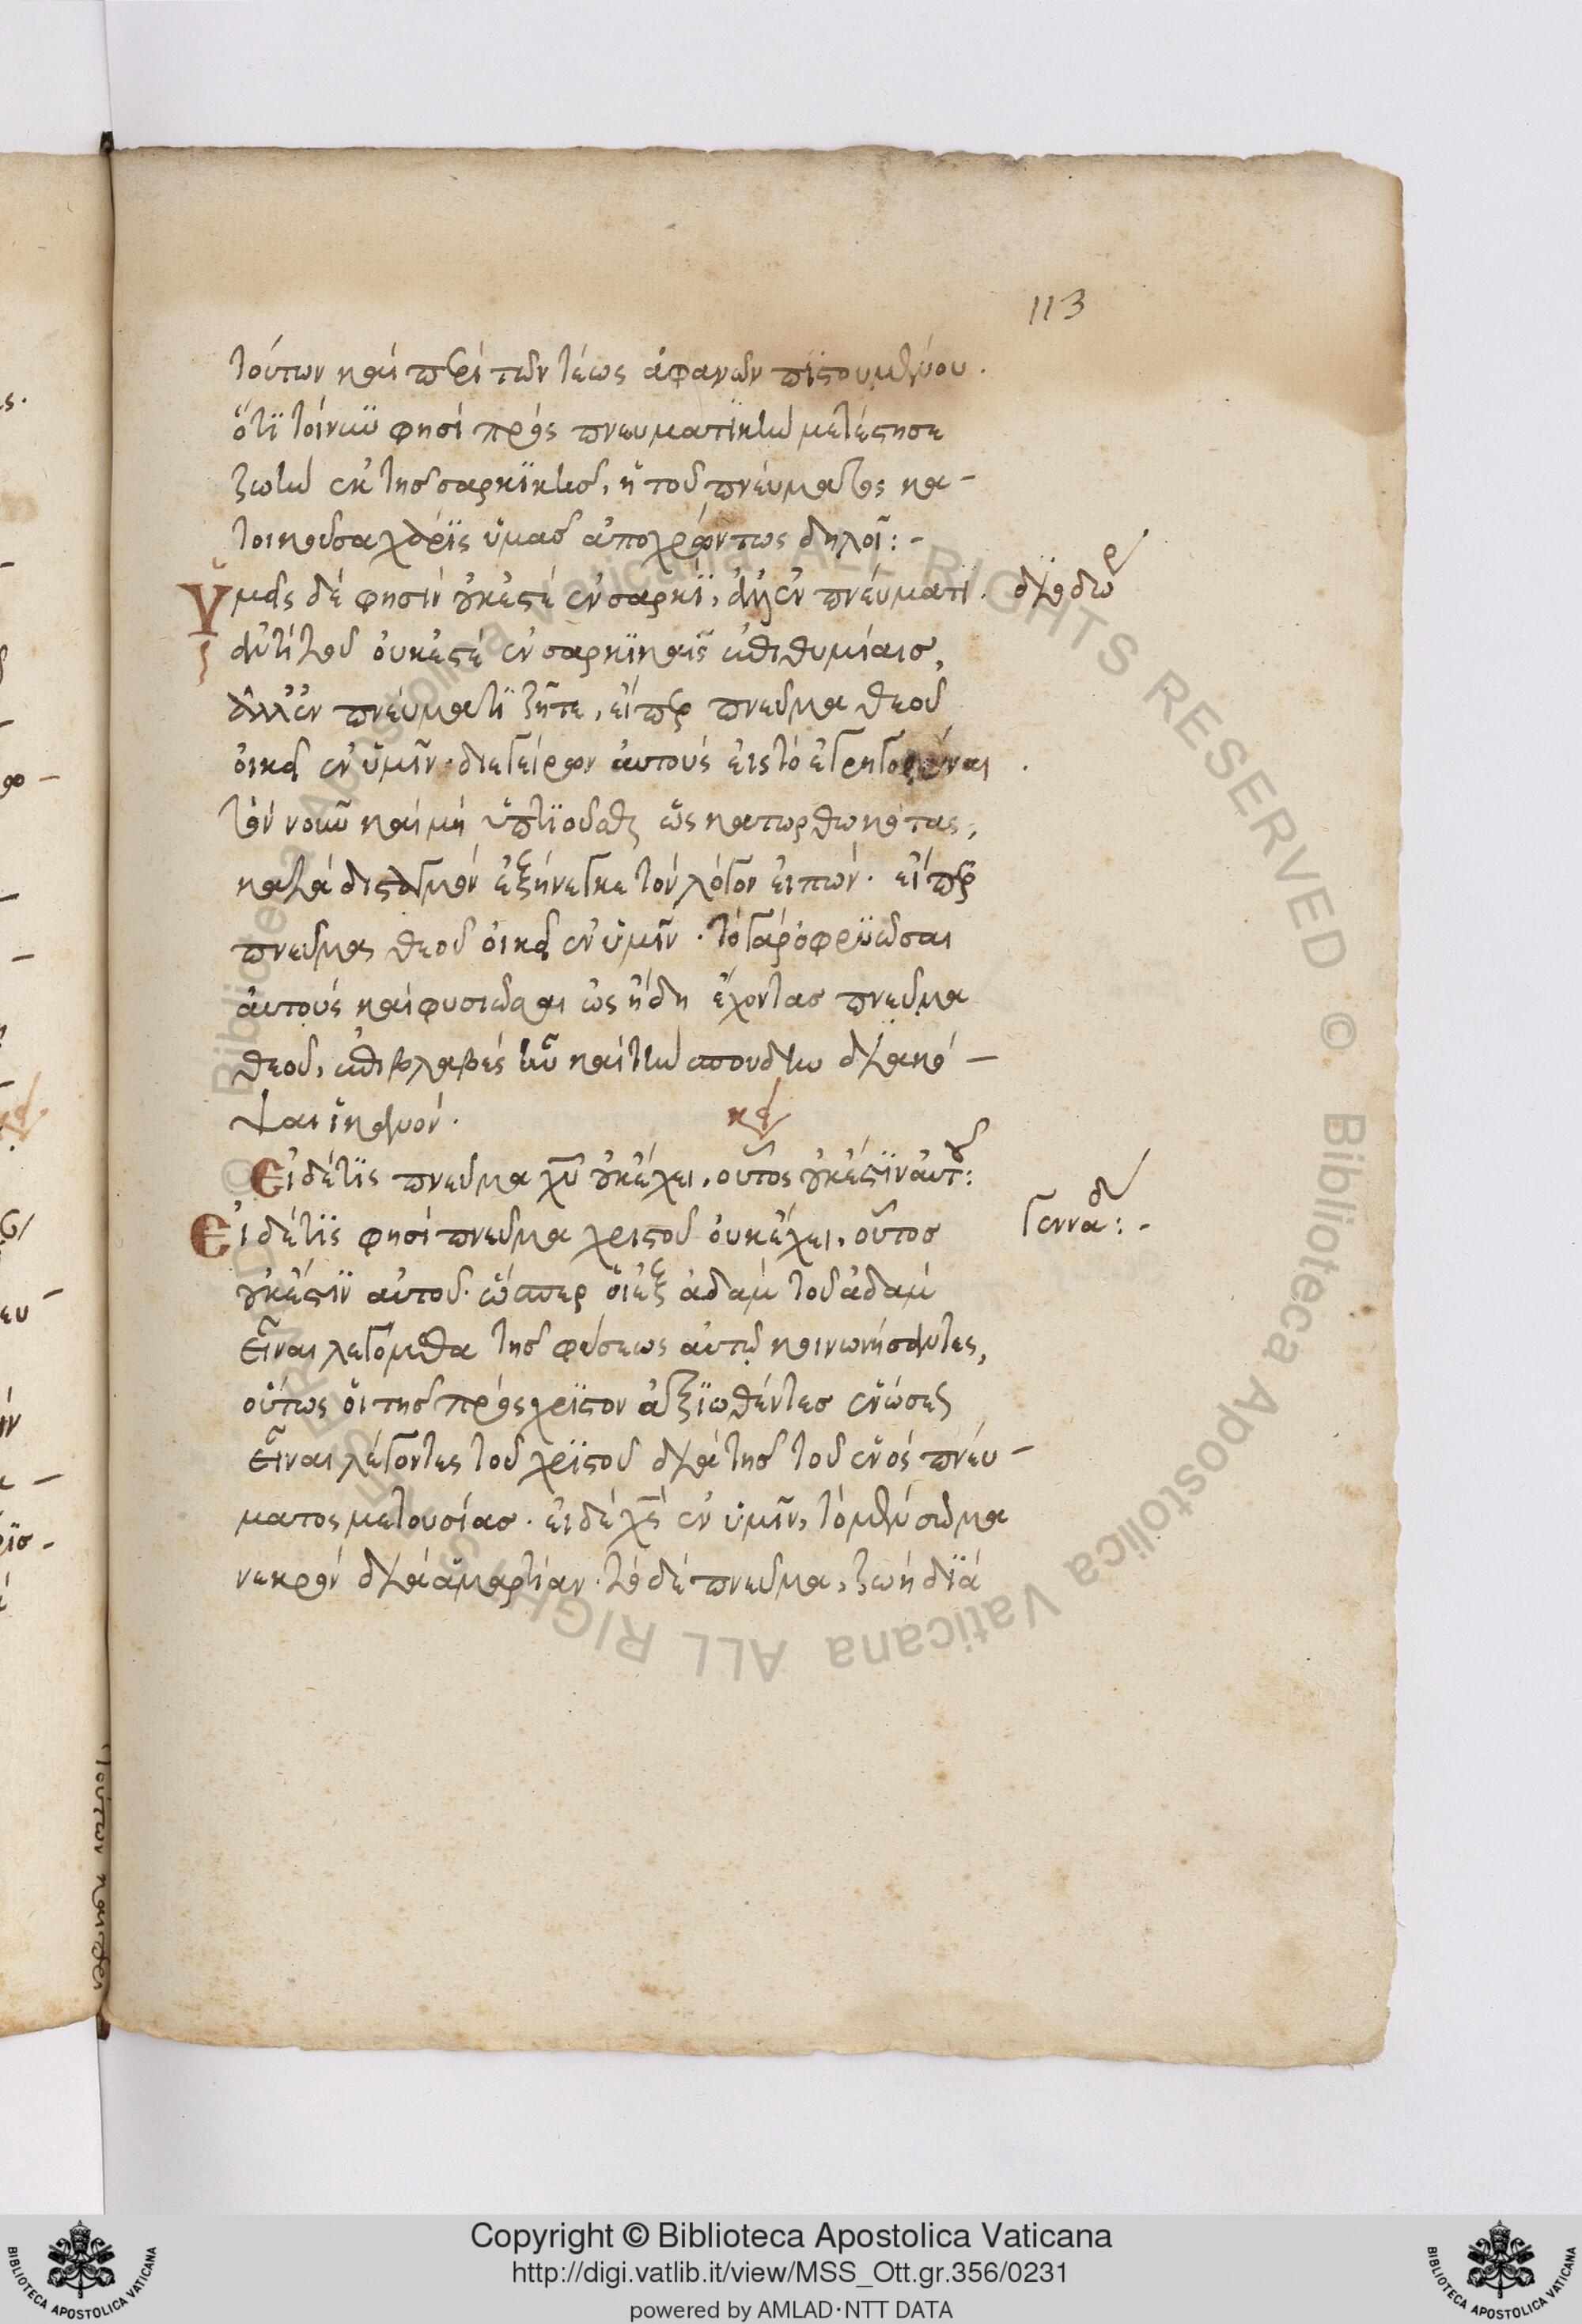 113
τούτων καὶ περὶ τῶν τέως ἀφανῶν πϊστουμένου.
ὅτϊ τοίνυν φησὶ πρὸς πνευματϊκὴν μετέστησε
ζωὴν ἐκ τῆς σαρκϊκῆς, ἡ τοῦ πνεύματος κα-
τοικοῦσα χάρϊς ὑμᾶς ἀποχρώντως δηλοῖ:-
Ὑμεῖς δέ φησὶν οὐκ ἐστὲ ἐν σαρκϊ, ἀλλ' ἐν πνεύματι. θεοδωρ
ἀντὶ τοῦ οὐκ ἐστὲ ἐν σαρκϊκαῖς ἐπιθυμίαις,
ἀλλ' ἐν πνεύματϊ ζῆτε, εἴπερ πνεῦμα θεοῦ
οἰκεῖ ἐν ὑμῖν. διεγείρων αὐτοὺς εἰς τὸ ἐγρηγορέναι
τὸν νοῦν καὶ μὴ ὑπτϊοῦσθαι ὡς κατωρθωκότας,
κατὰ δισταγμὸν ἐξήνεγκε τὸν λόγον εἰπών. εἴπερ
πνεῦμα θεοῦ οἰκεῖ ἐν ὑμῖν. τὸ γὰρ ὀφρϋῶσαι
αὐτοὺς καὶ φυσιῶσαι ὡς ἤδη ἔχοντας πνεῦμα
θεοῦ, ἐπιβλαβὲς ἦν καὶ τὴν σπουδὴν διακό-
ψαι ἱκανόν.
κεί
Εἰ δέ τϊς πνεῦμα χυ οὐκ ἔχει, οὗτος οὐκ ἔστϊν αὐτοῦ:
Εἰ δέ τϊς φησὶ πνεῦμα χριστοῦ οὐκ ἔχει, οὗτος γενναδ:-
οὐκ ἔστϊν αὐτοῦ. ὥσπερ οἱ ἐξ ἀδὰμ τοῦ ἀδὰμ
εἶναι λεγόμεθα τῆς φύσεως αὐτῷ κοινωνήσαντες,
οὕτως οἱ τῆς πρὸς χρϊστον ἀξϊωθέντες ἑνώσεως
εἶναι λέγοντες τοῦ χρϊστοῦ διὰ τῆς τοῦ ἑνὸς πνεύ-
ματος μετουσίας. εἰ δὲ χς ἐν ὑμῖν, τὸ μὲν σῶμα
νεκρὸν διὰ ἁμαρτίαν. τὸ δὲ πνεῦμα, ζωὴ δϊὰ
τούτων καὶ περι
Copyright © Biblioteca Apostolica Vaticana
http://digi.vatlib.it/view/MSS_Ott.gr.356/0231
powered by AMLAD·NTT DATA